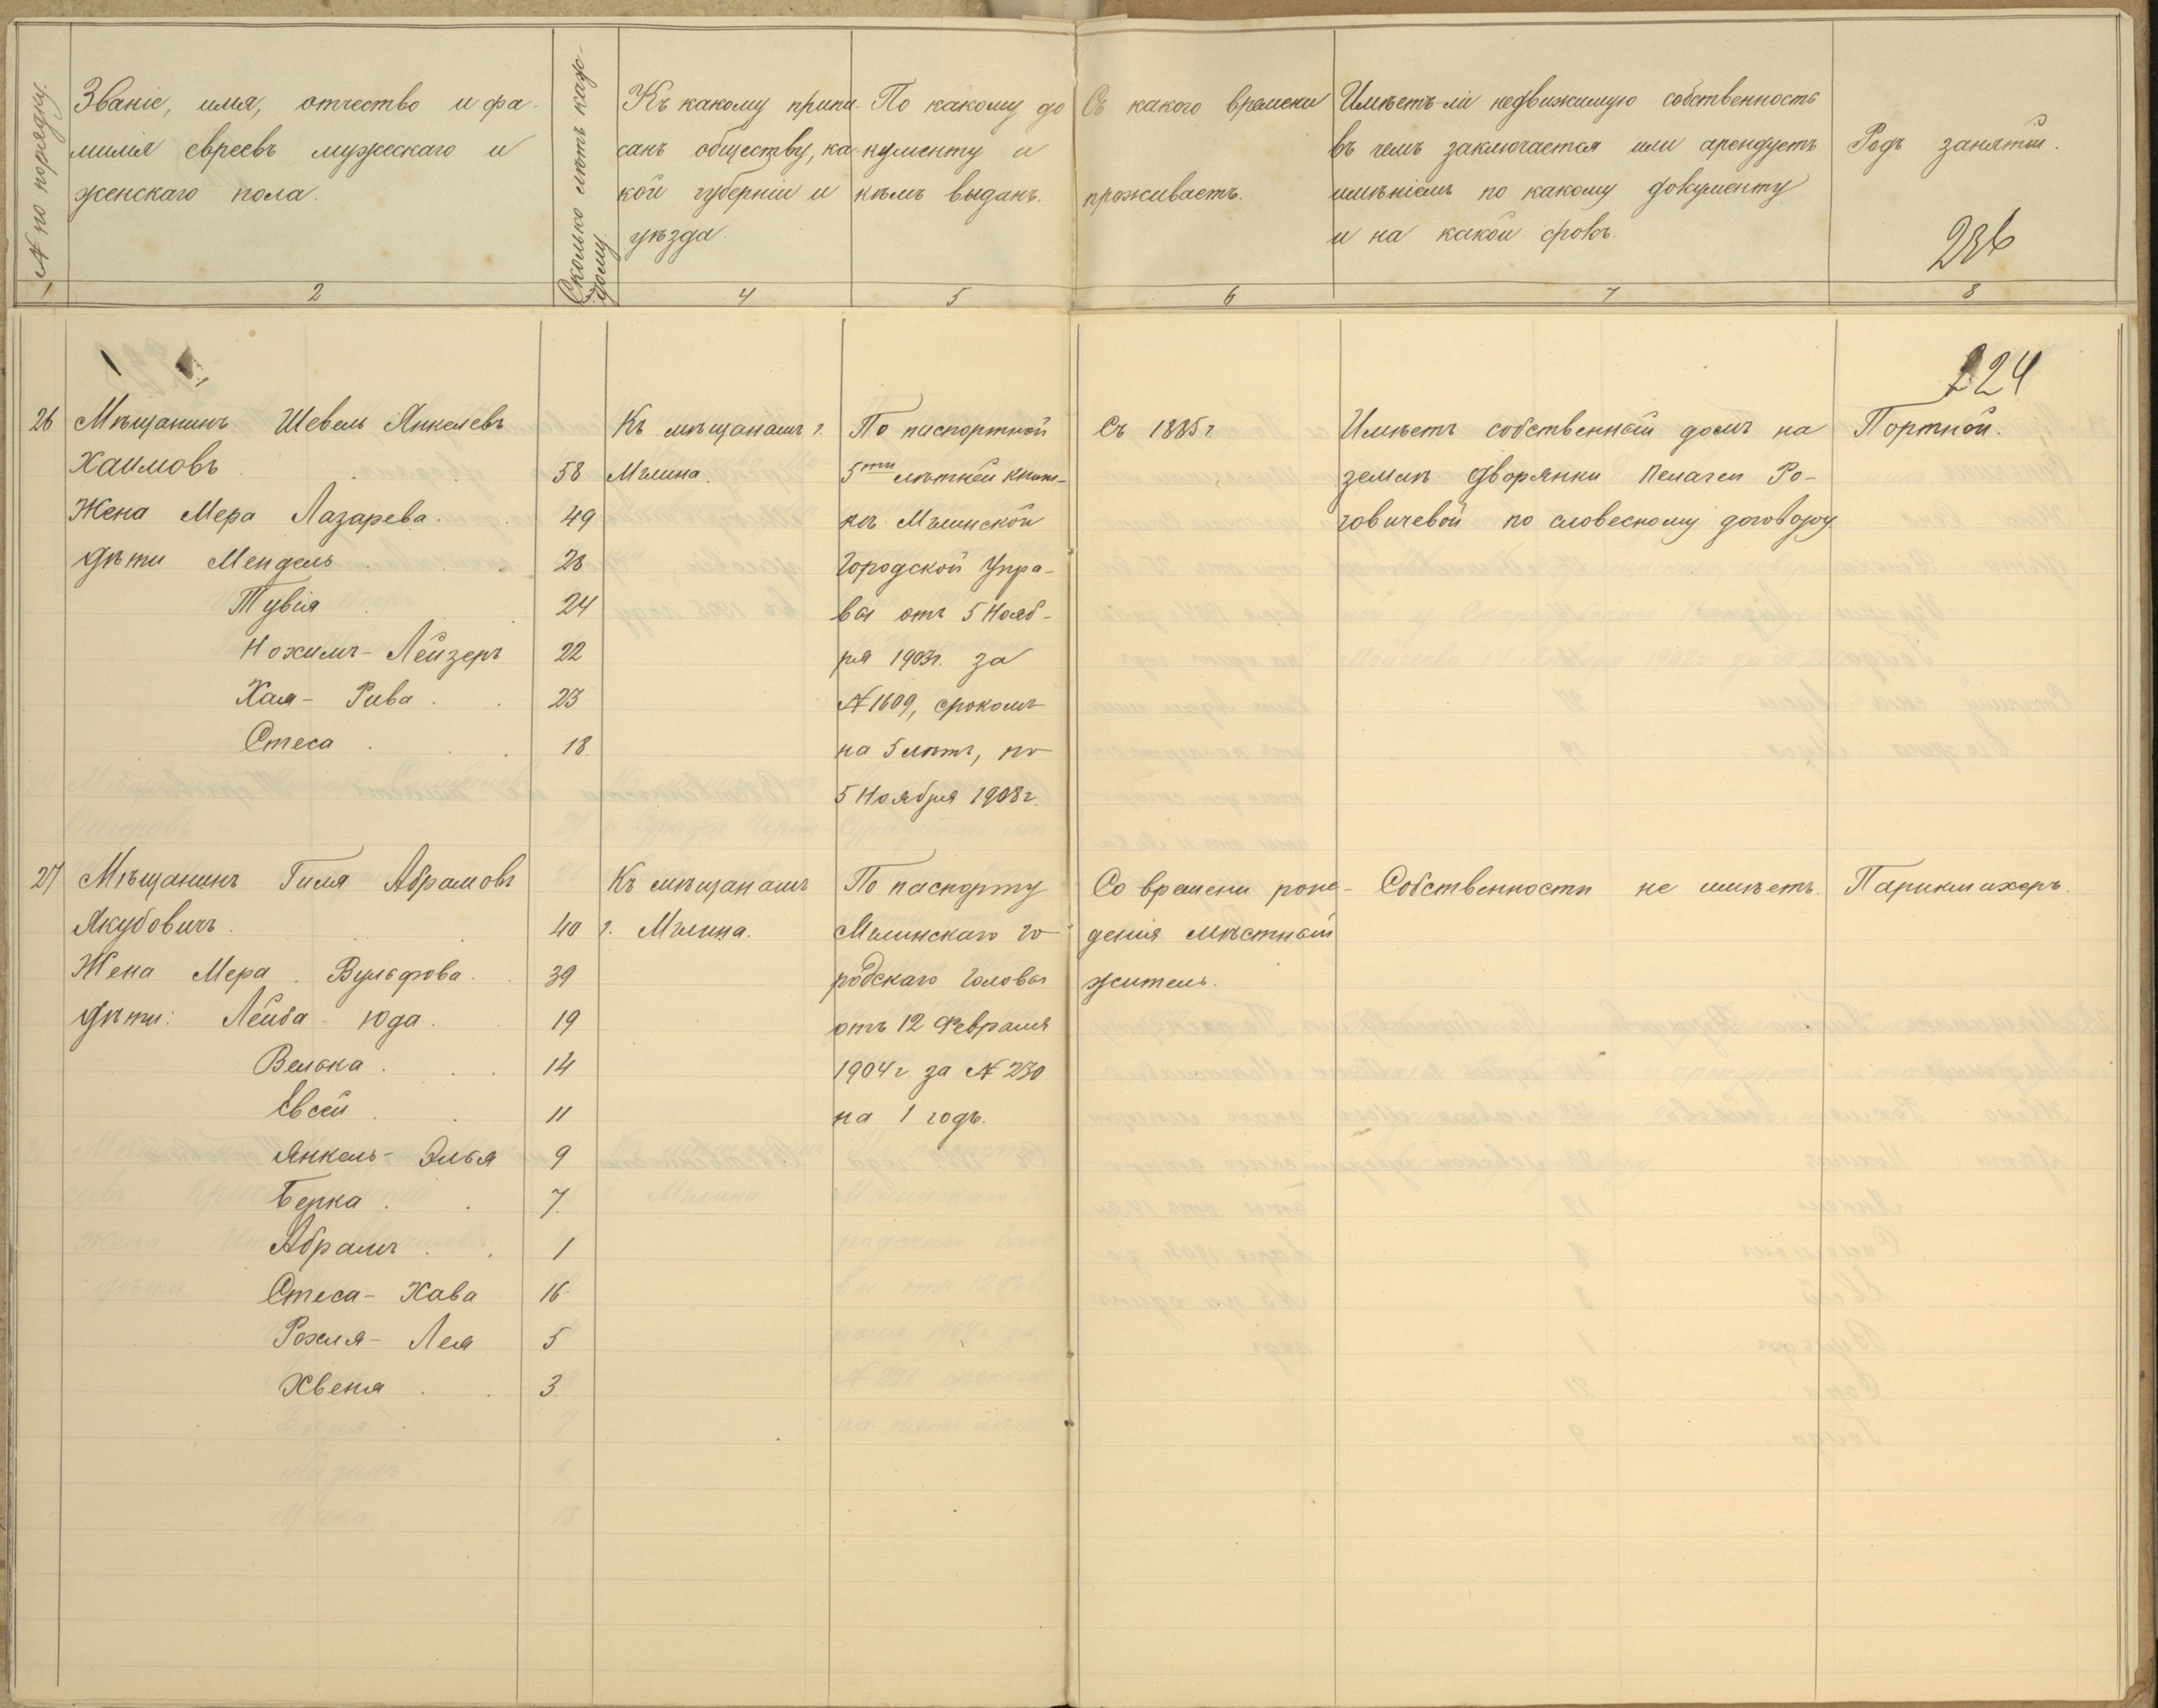 № по порядку.
Званіе, имя, отчество и фа-
милія евреевъ мужескаго и
женскаго пола.
Сколько лѣтъ каж-
дому.
Къ какому припи-
санъ обществу, ка-
кой губерніи и
уѣзда.
По какому до
кументу и
кѣмъ выданъ.
Съ какого времени
проживаетъ.
Имѣетъ-ли недвижимую собственность
въ чемъ заключается или арендуетъ
имѣніемъ по какому документу
и на какой срокъ.
Родъ занятій.
236
1 2 3 4 5 6 7 8
224
26 Мѣщанинъ Шевель Янкелевъ
Хаимовъ 58
Жена Мера Лазарева. 49
дѣти Мендель 28
Тувія 24
Нохимъ-Лейзеръ 22
Хая-Рива 23
Стеса 18.
Къ мѣщанамъ г.
Мглина.
По паспортной
5ти лѣтней книж-
кѣ Мглинской
Городской Упра-
вы отъ 5 Нояб-
ря 1903г. за
№ 1609, срокомъ
на 5 лѣтъ, по
5 Ноября 1908г.
Съ 1885г.
Имѣетъ собственный домъ на
землѣ дворянки Пелагеи Ро-
говичевой по словесному договору.
Портной.
27 Мѣщанинъ Гиля Абрамовъ
Якубовичъ. 40
Жена Мера Вульфова. 39
Дѣти: Лейба-Юда. 19
Велька. 14
Евсей 11
Янкель-Элья 9
Берка. 7
Абрамъ 1
Стеса-Хава 16
Рохля-Лея 5
Хвеня 3
Къ мѣщанамъ
г. Мглина.
По паспорту
Мглинскаго го-
родскаго головы
отъ 12 Февраля
1904г. за № 230
на 1 годъ.
Со времени рож-
денія мѣстный
житель.
Собственности не имѣетъ.
Парикмахеръ.